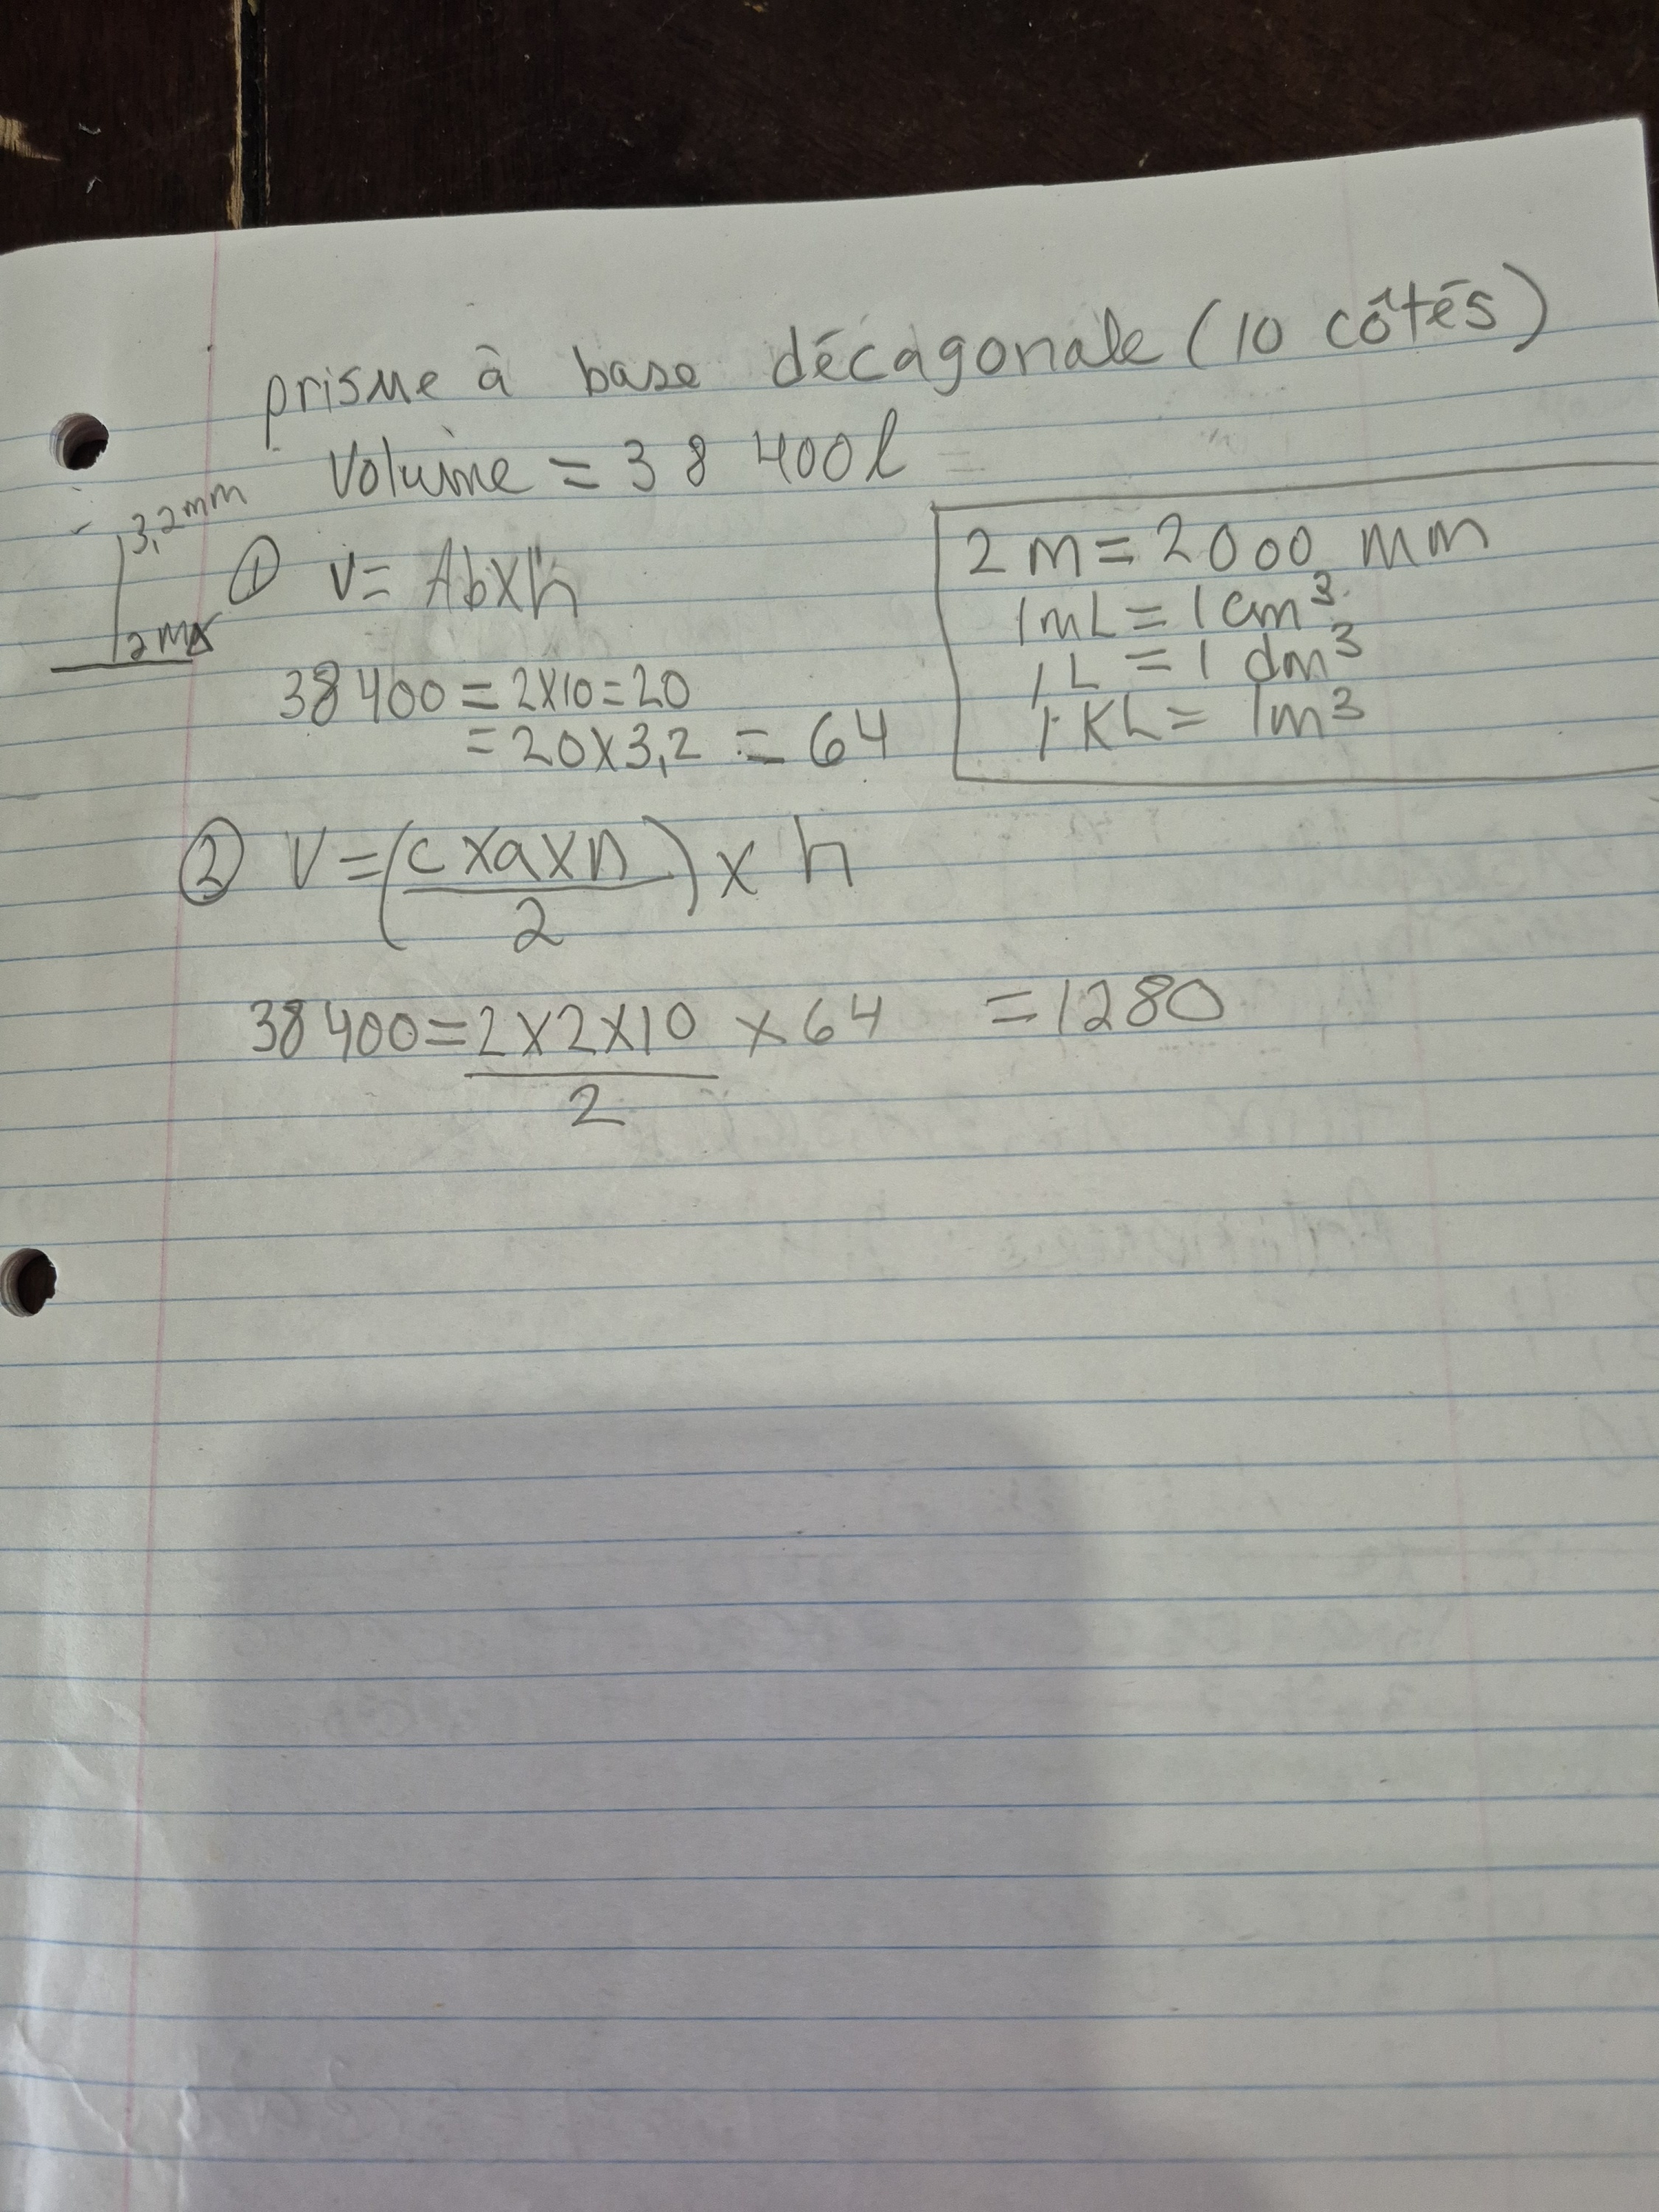 prisme à base décagonale (10 côtés)
Volume = 38 400l
3,2mm
2m
① V= AbXh
38 400 = 2X10=20
= 20X3,2 = 64
2 m = 2000 mm
1mL = 1cm³
1L = 1 dm³
1 KL = 1m³
② V = (c X a X n / 2) X h
38 400 = 2 X 2 X 10 / 2 X 64 = 1280